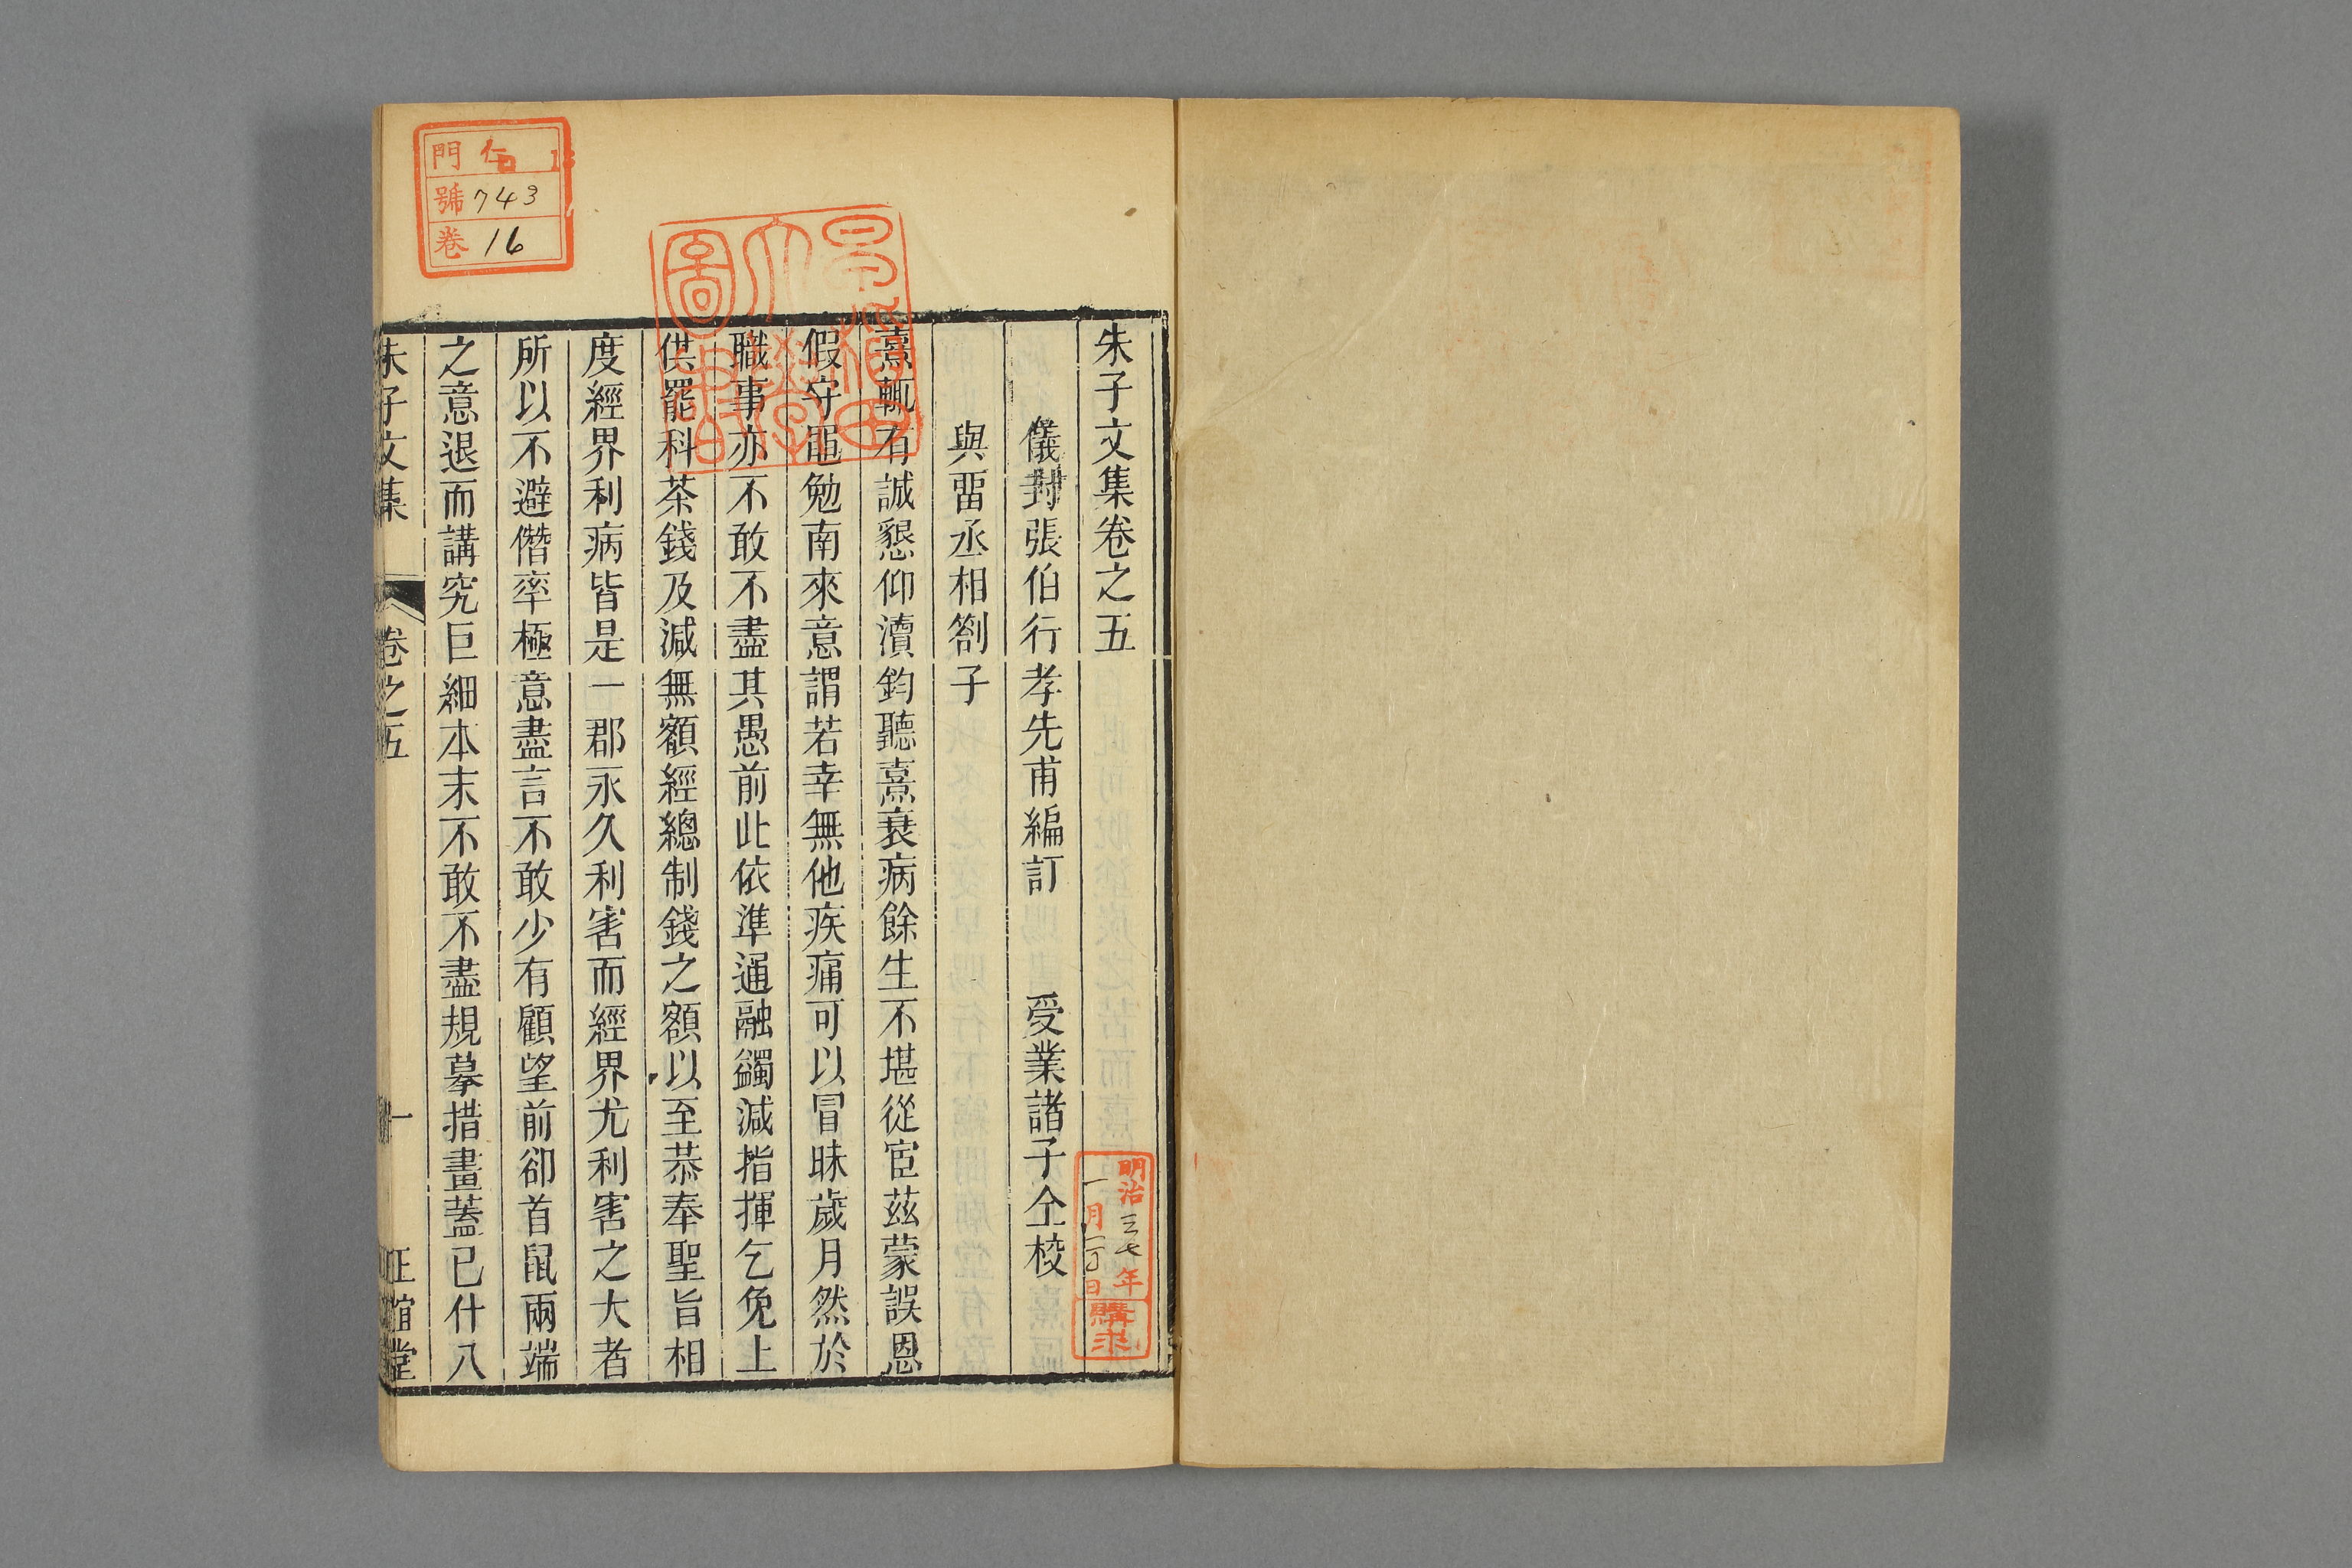 朱子文集卷之五
儀封張伯行孝先甫編訂　　受業諸子仝校
與畱丞相劄子
熹輒有誠懇仰瀆鈞聽熹衰病餘生不堪從宦茲蒙誤恩
假守黽勉南來意謂若幸無他疾痛可以冒昧歲月然於
職事亦不敢不盡其愚前此依準通融蠲減指揮乞免上
供罷科茶錢及減無額經總制錢之額以至恭奉聖旨相
度經界利病皆是一郡永久利害而經界尤利害之大者
所以不避僭率極意盡言不敢少有顧望前卻首鼠兩端
之意退而講究巨細本末不敢不盡規摹措畫蓋已什八
朱子文集　卷之五　一　正誼堂
門 仁
號 743
卷 16
早稻田
大學
圖書
明治三七年
一月
日
購求